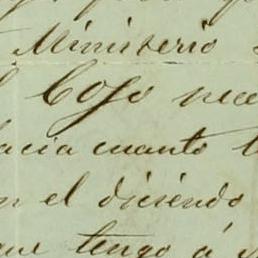 Ministerio
Cojo nece
hacia cuanto t
n el diciendo
que tengo á